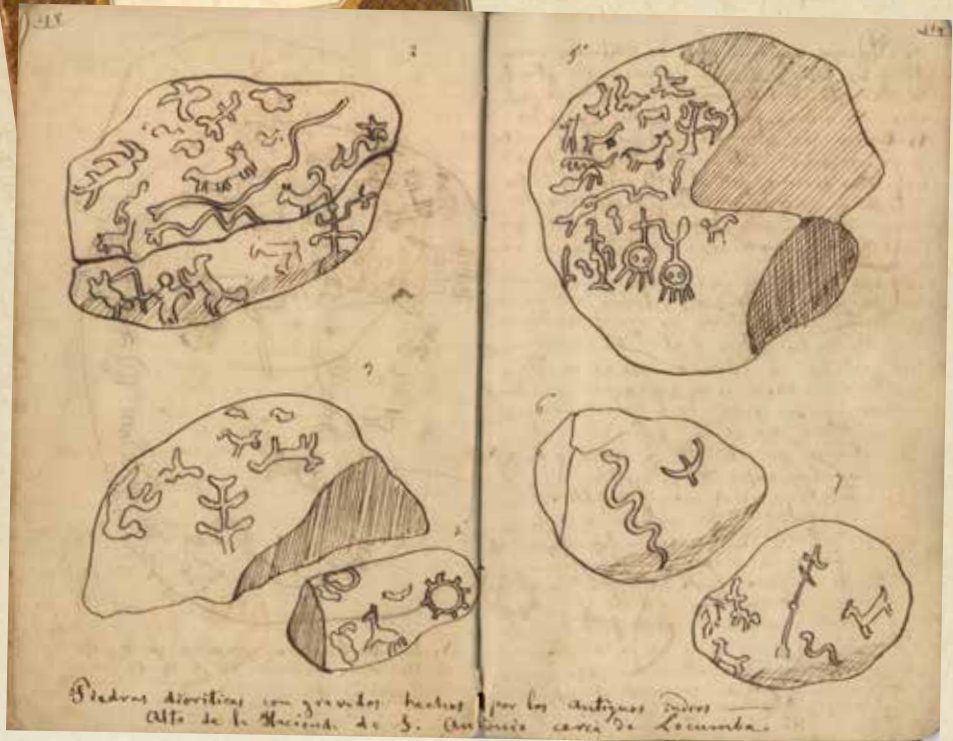 5º
6
7
Piedras dioriticas con gravados hechos por los antiguos indios
Alto de la Hacienda de S. Antonio cerca de Locumba.